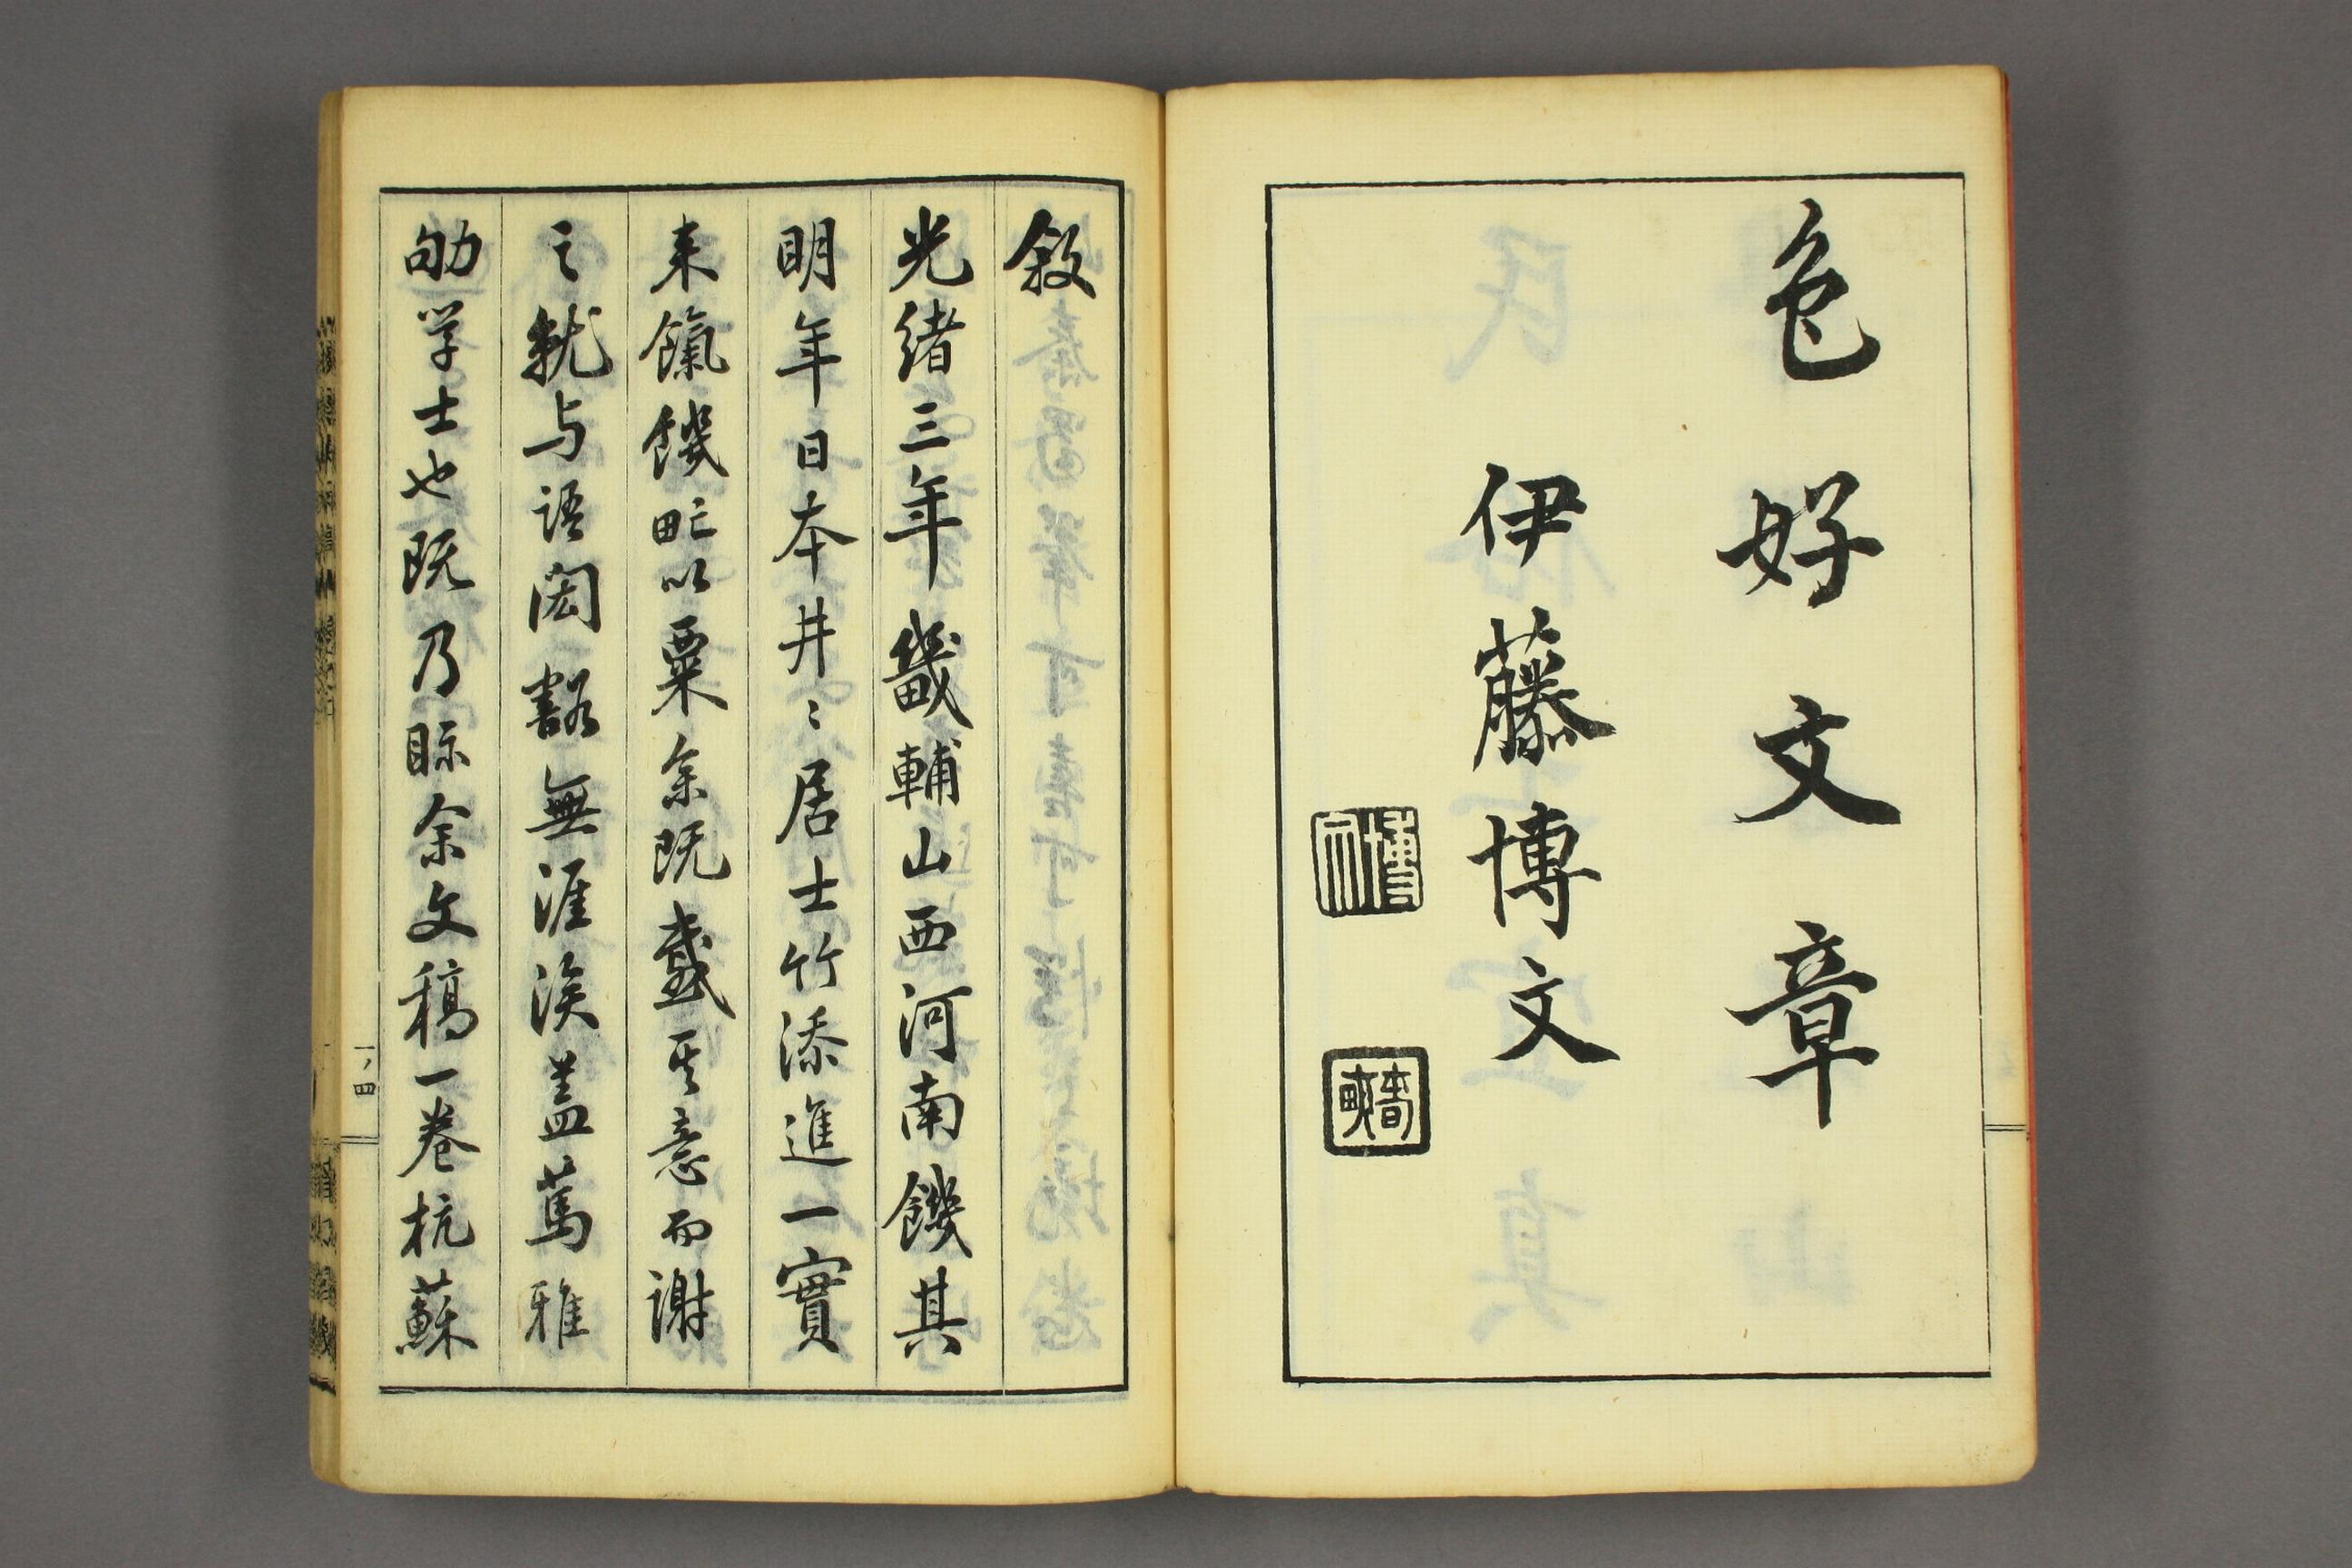 色好文章
伊藤博文
博文
春畝
敘
光緒三年畿輔山西河南饑其
明年日本井〻居士竹添進一實
来餼饑甿以粟余既感其意而謝
之就与語閎豁無涯涘盖萬雅
劬学士也既乃眎余文稿一卷杭蘇
一ノ四